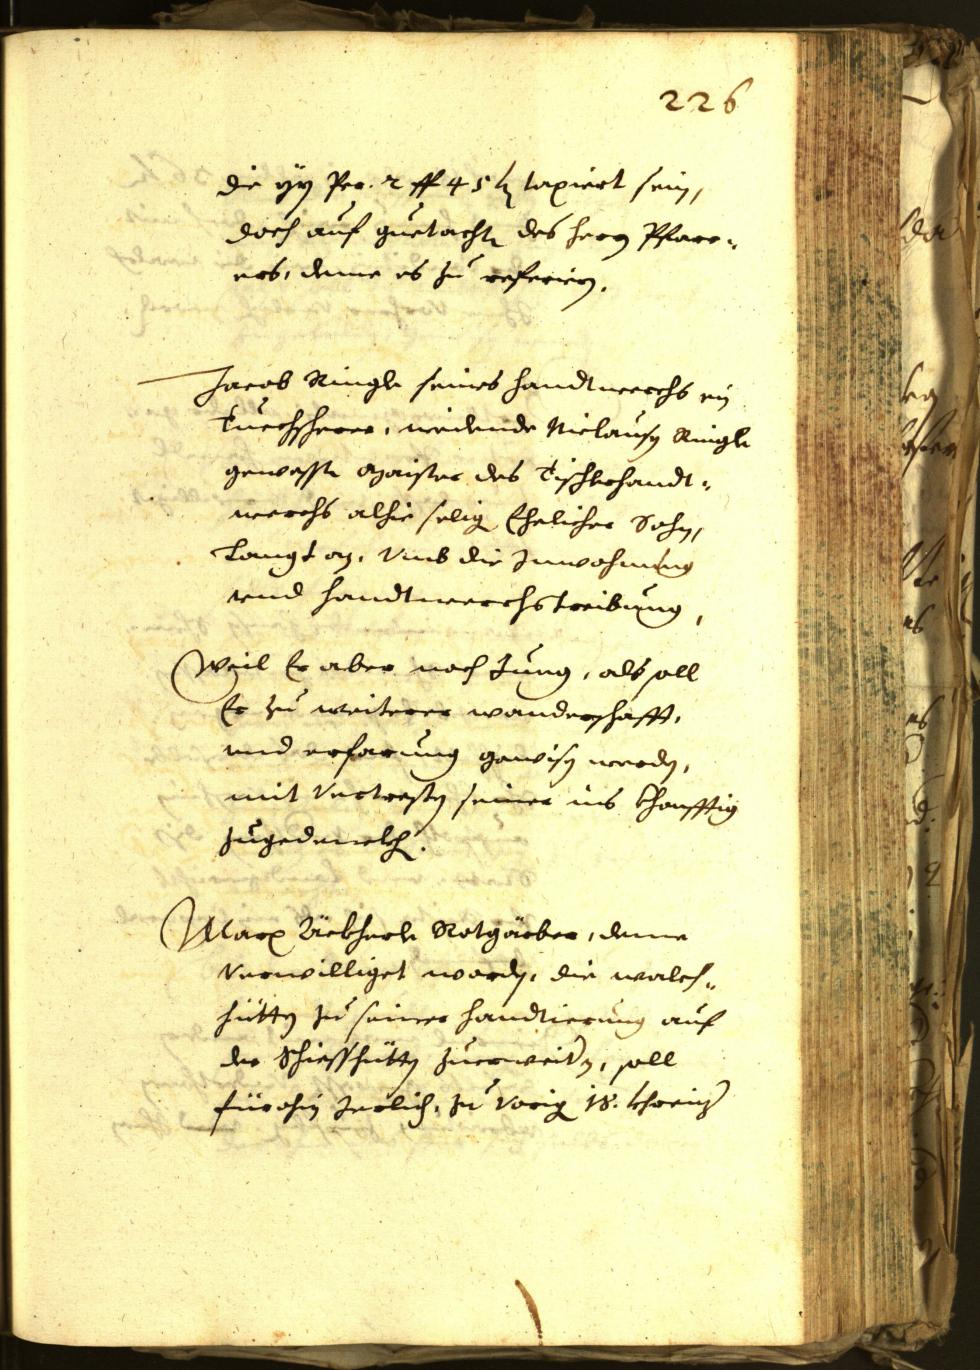 226
die yz Per. 2 ff 45 k taxiert sein,
doch auf guetacht des herrn Pfarr-
ers, deme es zu referiern.
Jacob Ringle seines handtwerchs ein
Tuechscherer, weilende Niclausn Ringle
gewesste maister des Tischlerhandt-
werchs alhie selig Ehelicher Sohn,
langt an, vmb die Innwohnung
vnnd handtwerchstreibung,
Weil Er aber noch Jung, als soll
Er zu weiterer wanderschafft,
vnd erfarung gewisn werdn,
mit Vertrestn seiner ins khonfftig
zugedenckhen.
Marx Rotgärber, deme
Verwilliget wordn, die walch-
hüttn zu seiner handtierung auf
der Schiesshüttn zuerweitern, soll
fürohin Jerlich, zu vorig 18. khreitzer